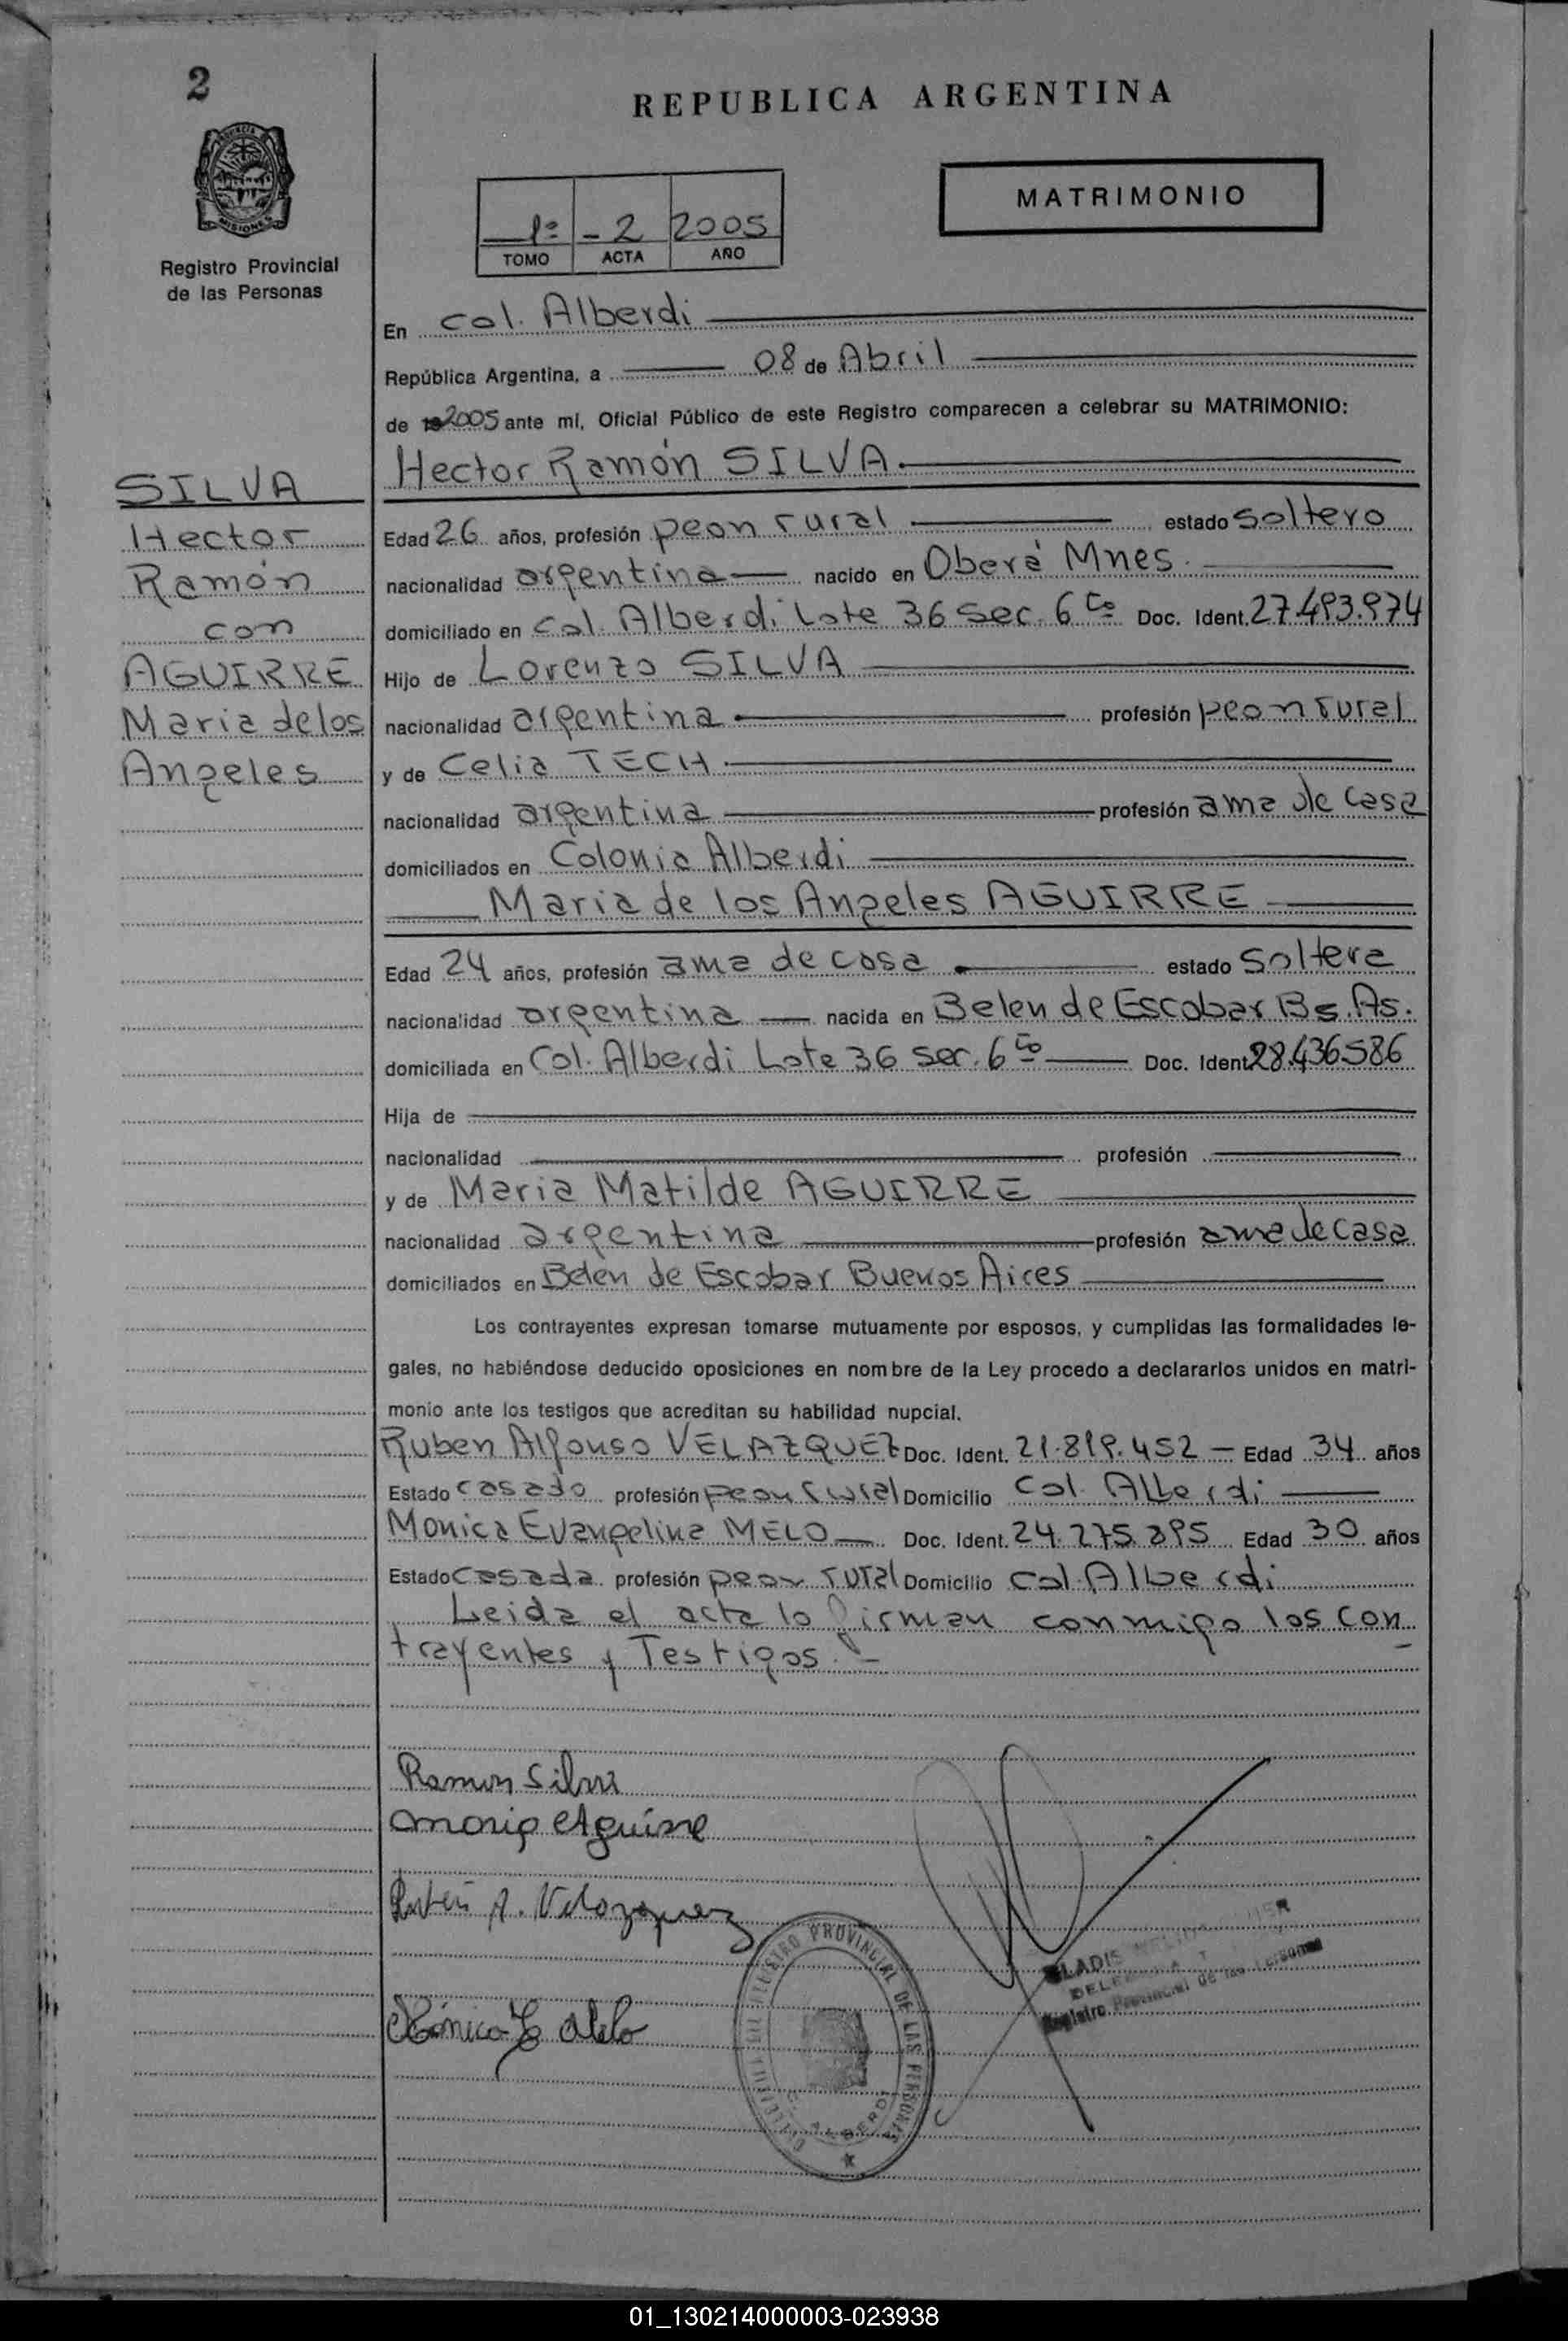 2
REPUBLICA ARGENTINA
MISIONES
Registro Provincial
de las Personas
1º - 2 2005
TOMO ACTA AÑO
MATRIMONIO
En Col. Alberdi
República Argentina, a 08 de Abril
de 2005 ante mí, Oficial Público de este Registro comparecen a celebrar su MATRIMONIO:
Hector Ramón SILVA
SILVA
Hector
Ramón
con
AGUIRRE
Maria de los
Angeles
Edad 26 años, profesión peon rural estado soltero
nacionalidad argentina nacido en Oberá Mnes.
domiciliado en Col. Alberdi Lote 36 Sec. 6ta Doc. Ident. 27.493.974
Hijo de Lorenzo SILVA
nacionalidad argentina profesión peon rural
y de Celia TECH
nacionalidad argentina profesión ama de casa
domiciliados en Colonia Alberdi
Maria de los Angeles AGUIRRE
Edad 24 años, profesión ama de casa estado Soltera
nacionalidad argentina nacida en Belen de Escobar Bs. As.
domiciliada en Col. Alberdi Lote 36 Sec. 6ta Doc. Ident. 28.436.586
Hija de
nacionalidad profesión
y de Maria Matilde AGUIRRE
nacionalidad argentina profesión ama de casa
domiciliados en Belen de Escobar Buenos Aires
Los contrayentes expresan tomarse mutuamente por esposos, y cumplidas las formalidades le-
gales, no habiéndose deducido oposiciones en nombre de la Ley procedo a declararlos unidos en matri-
monio ante los testigos que acreditan su habilidad nupcial.
Ruben Alfonso VELAZQUEZ Doc. Ident. 21.819.452 — Edad 34 años
Estado casado profesión peon rural Domicilio Col. Alberdi
Monica Evangelina MELO Doc. Ident. 24.275.895 Edad 30 años
Estado casada profesión peon rural Domicilio Col. Alberdi
Leida el acta lo firman conmigo los con
trayentes y Testigos.-
Ramon Silva
Maria Aguirre
Rubén A. Velazquez
Mónica E Melo
REGISTRO PROVINCIAL DE LAS PERSONAS
C. ALBERDI
GLADIS
Registro Provincial de las Personas
01_130214000003-023938